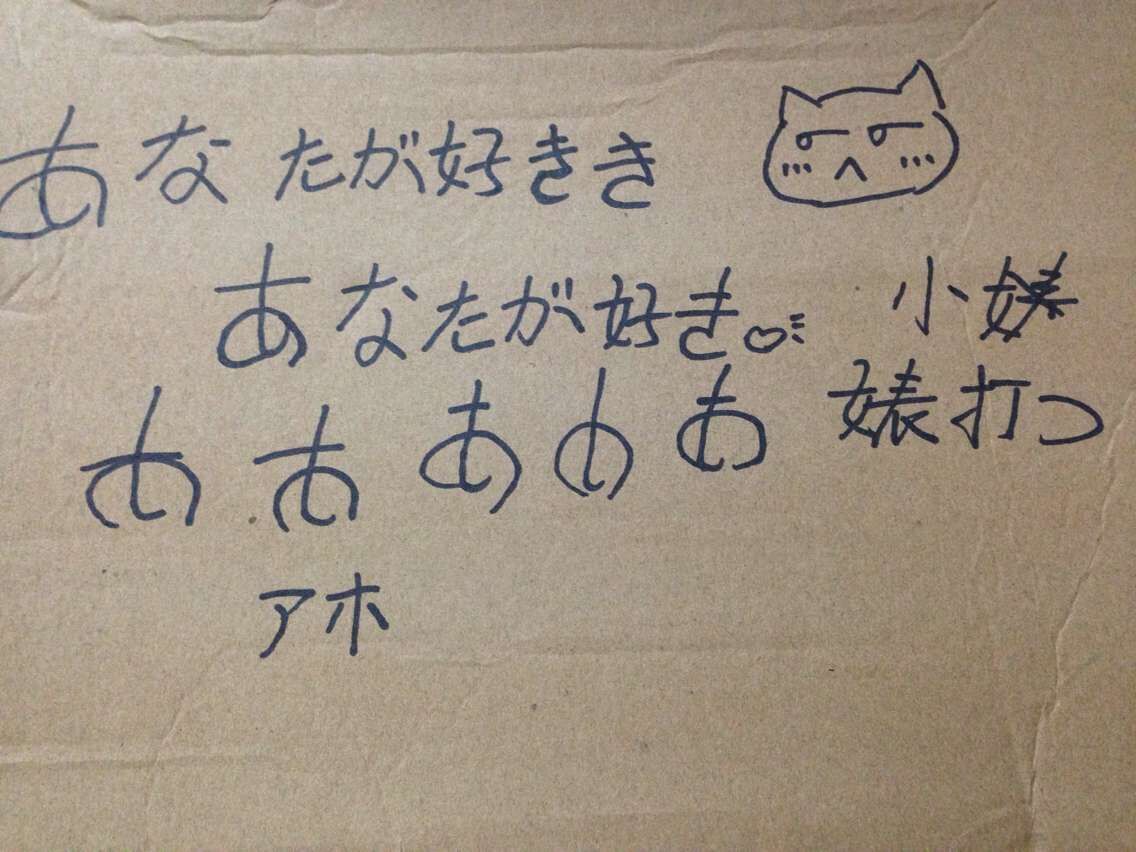 あなたが好きき
あなたが好き。 小
婊打つ
あ あ あ あ あ
アホ